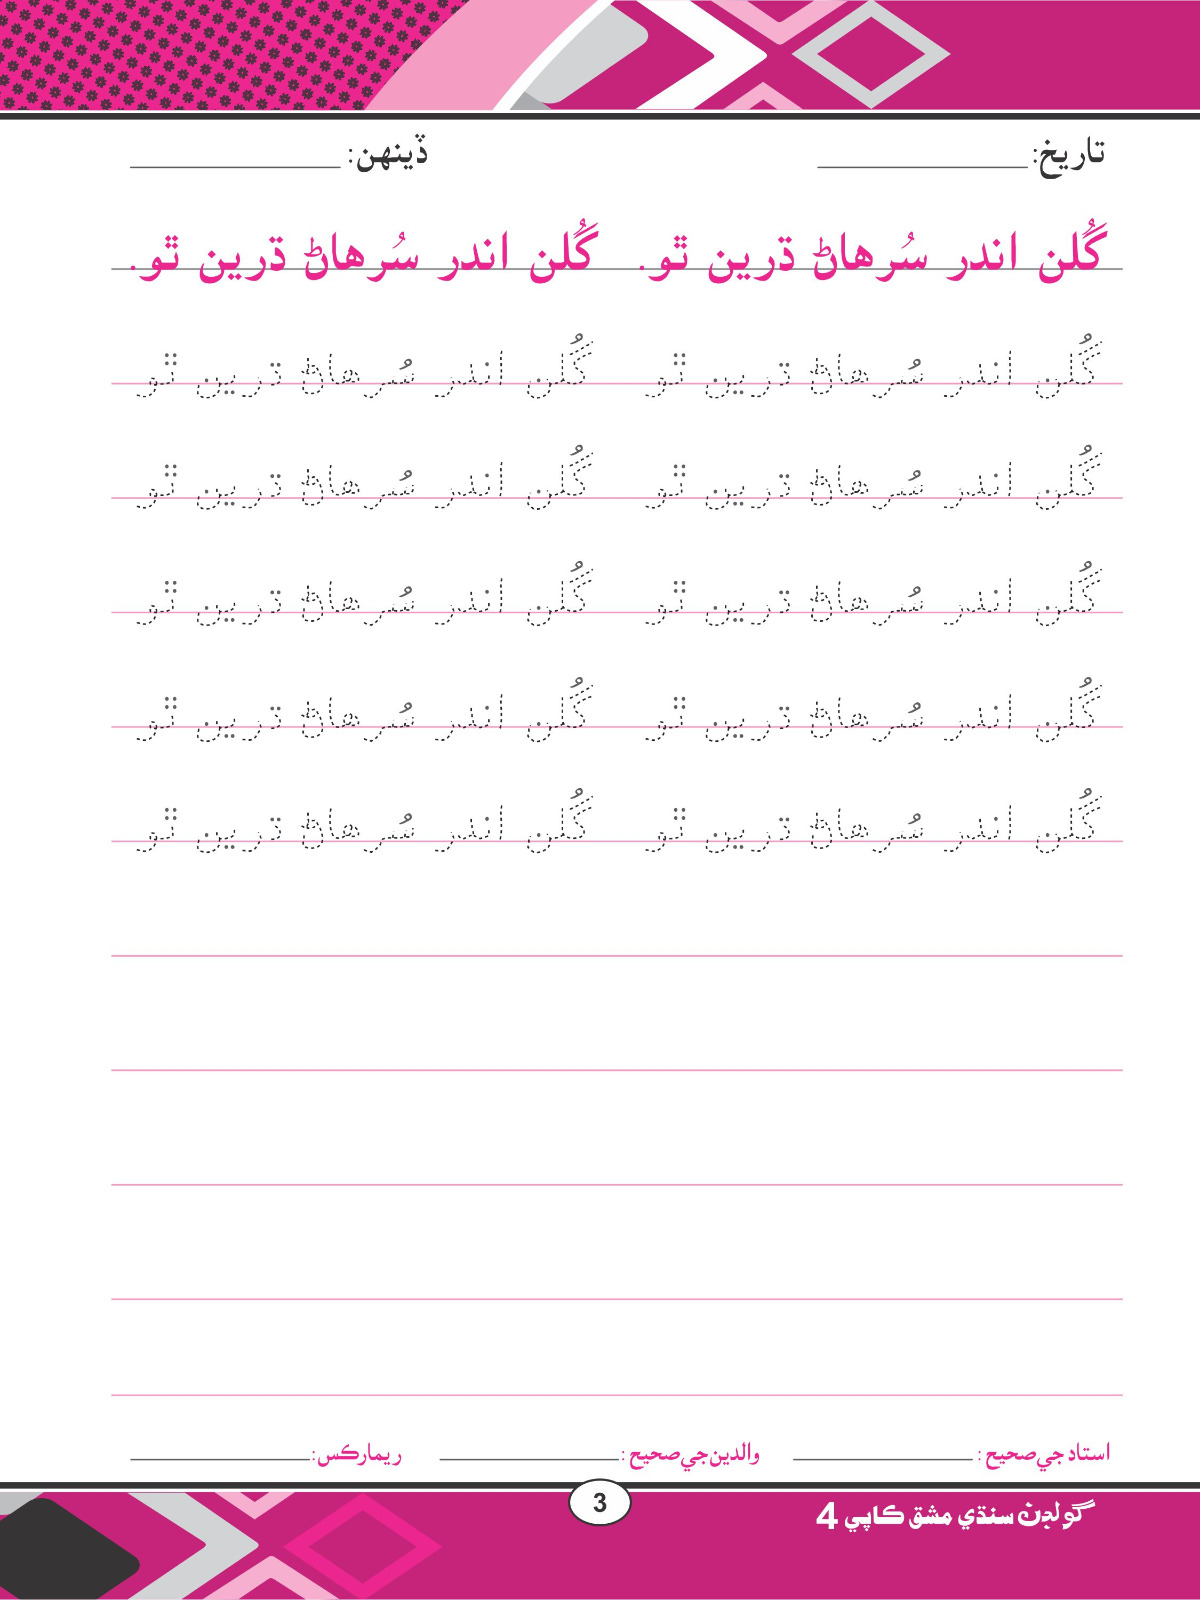 تاريخ: ڏينهن:
گُلن اندر سُرهاڻ ڌرين ٿو. گُلن اندر سُرهاڻ ڌرين ٿو.
گُلن اندر سُرهاڻ ڌرين ٿو گُلن اندر سُرهاڻ ڌرين ٿو
گُلن اندر سُرهاڻ ڌرين ٿو گُلن اندر سُرهاڻ ڌرين ٿو
گُلن اندر سُرهاڻ ڌرين ٿو گُلن اندر سُرهاڻ ڌرين ٿو
گُلن اندر سُرهاڻ ڌرين ٿو گُلن اندر سُرهاڻ ڌرين ٿو
گُلن اندر سُرهاڻ ڌرين ٿو گُلن اندر سُرهاڻ ڌرين ٿو
استاد جي صحيح: والدين جي صحيح: ريمارڪس:
3
گولڊن سنڌي مشق ڪاپي 4